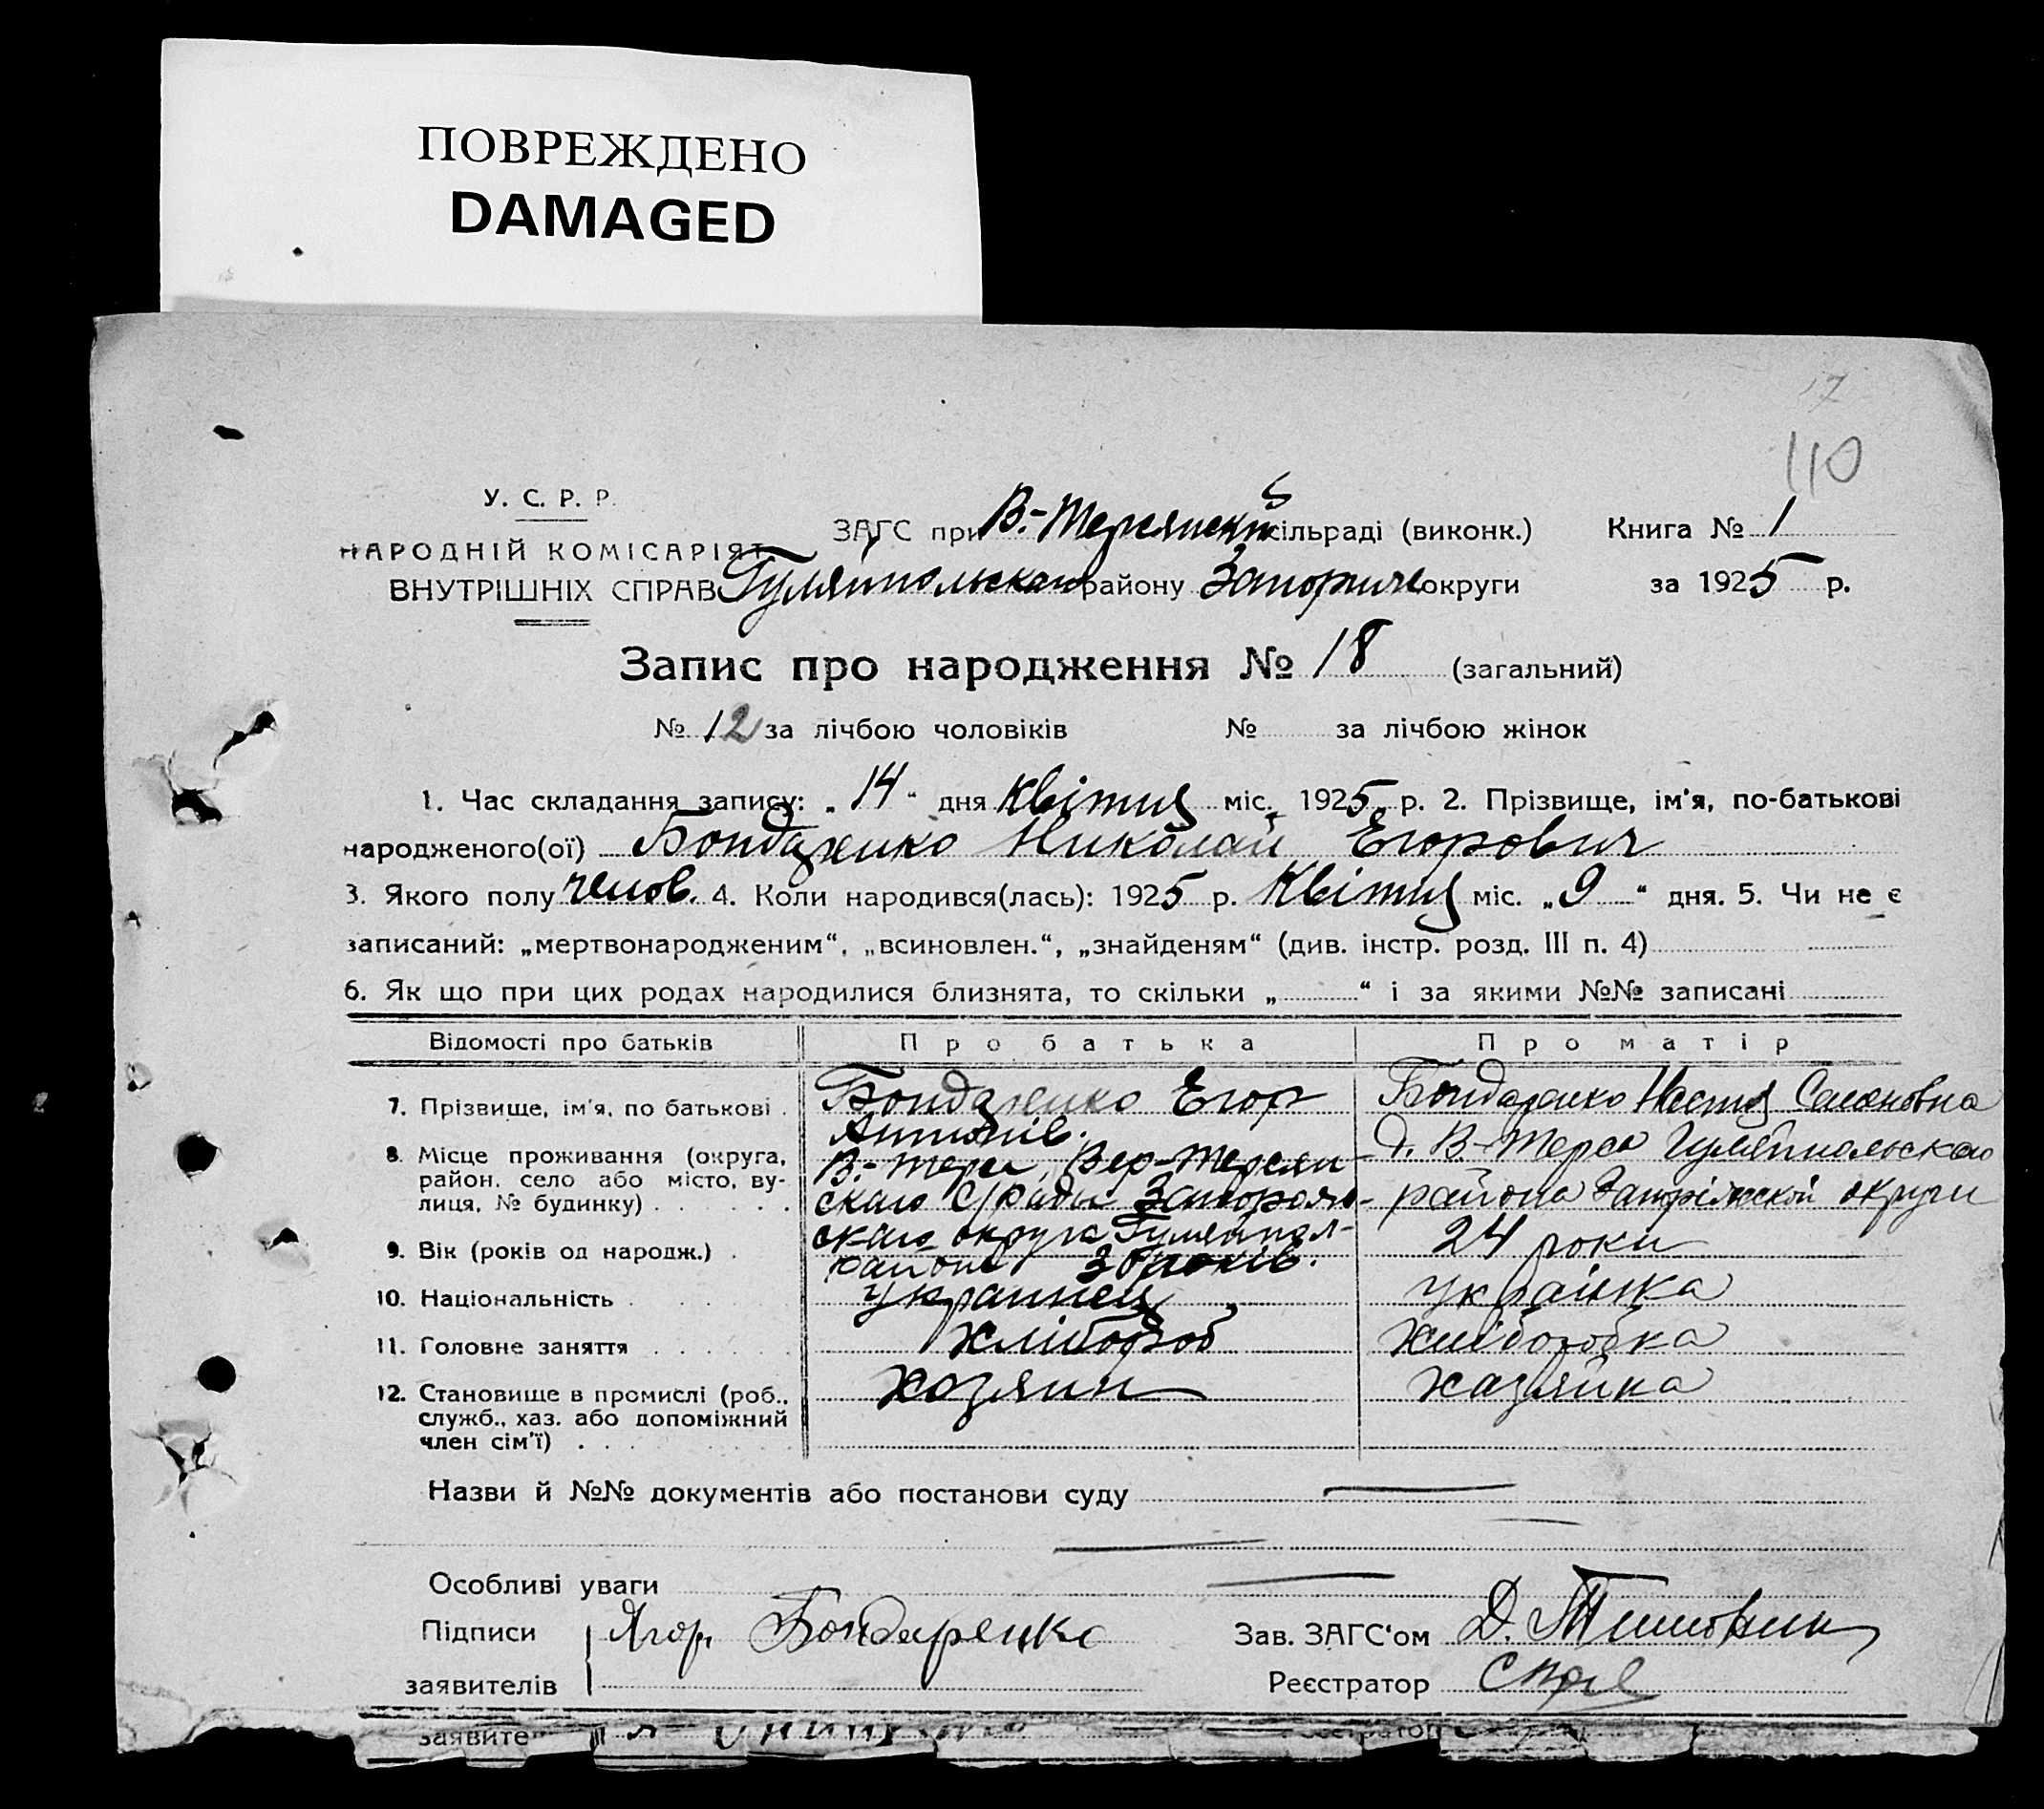 ПОВРЕЖДЕНО
DAMAGED
17
110
У. С. Р. Р.
НАРОДНІЙ КОМІСАРІЯТ
ВНУТРІШНІХ СПРАВ
ЗАГС при В.-Терсянскій сільраді (виконк.) Книга № 1
Гуляйпольского району Запорижс округи за 1925 р.
Запис про народження № 18 (загальний)
№ 12 за лічбою чоловіків № за лічбою жінок
1. Час складання запису: „ 14 “ дня Квітня міс. 1925 р. 2. Прізвище, ім'я, по-батькові
народженого(ої) Бондаренко Николай Егорович
3. Якого полу челов. 4. Коли народився(лась): 1925 р. Квітня міс. „ 9 “ дня. 5. Чи не є
записаний: „мертвонародженим“, „всиновлен.“, „знайденям“ (див. інстр. розд. III п. 4)
6. Як що при цих родах народилися близнята, то скільки „ “ і за якими №№ записані
Відомості про батьків Про батька Про матір
7. Прізвище, ім'я, по батькові . Бондаренко Егор Антонів. Бондаренко Настя Семеновна
8. Місце проживання (округа,
район, село або місто, ву-
лиця, № будинку) . . . . . .
В.-Терса, Вер-Терсян-
ского с/ради Запорож-
ского округа Гуляйпол-
района
д. В-Терса Гуляйпольского
района Запоріжской округи
9. Вік (років од народж.) . 36 років. 24 роки
10. Національність . . . . Украинец Українка
11. Головне заняття . . . . . . Хлібороб Хліборобка
12. Становище в промислі (роб.,
служб., хаз. або допоміжний
член сім'ї) . . .
Хозяин Хазяйка
Назви й №№ документів або постанови суду
Особливі уваги
Підписи
заявителів
Ягор Бондаренко
Зав. ЗАГС'ом Д.
Реєстратор
заявите